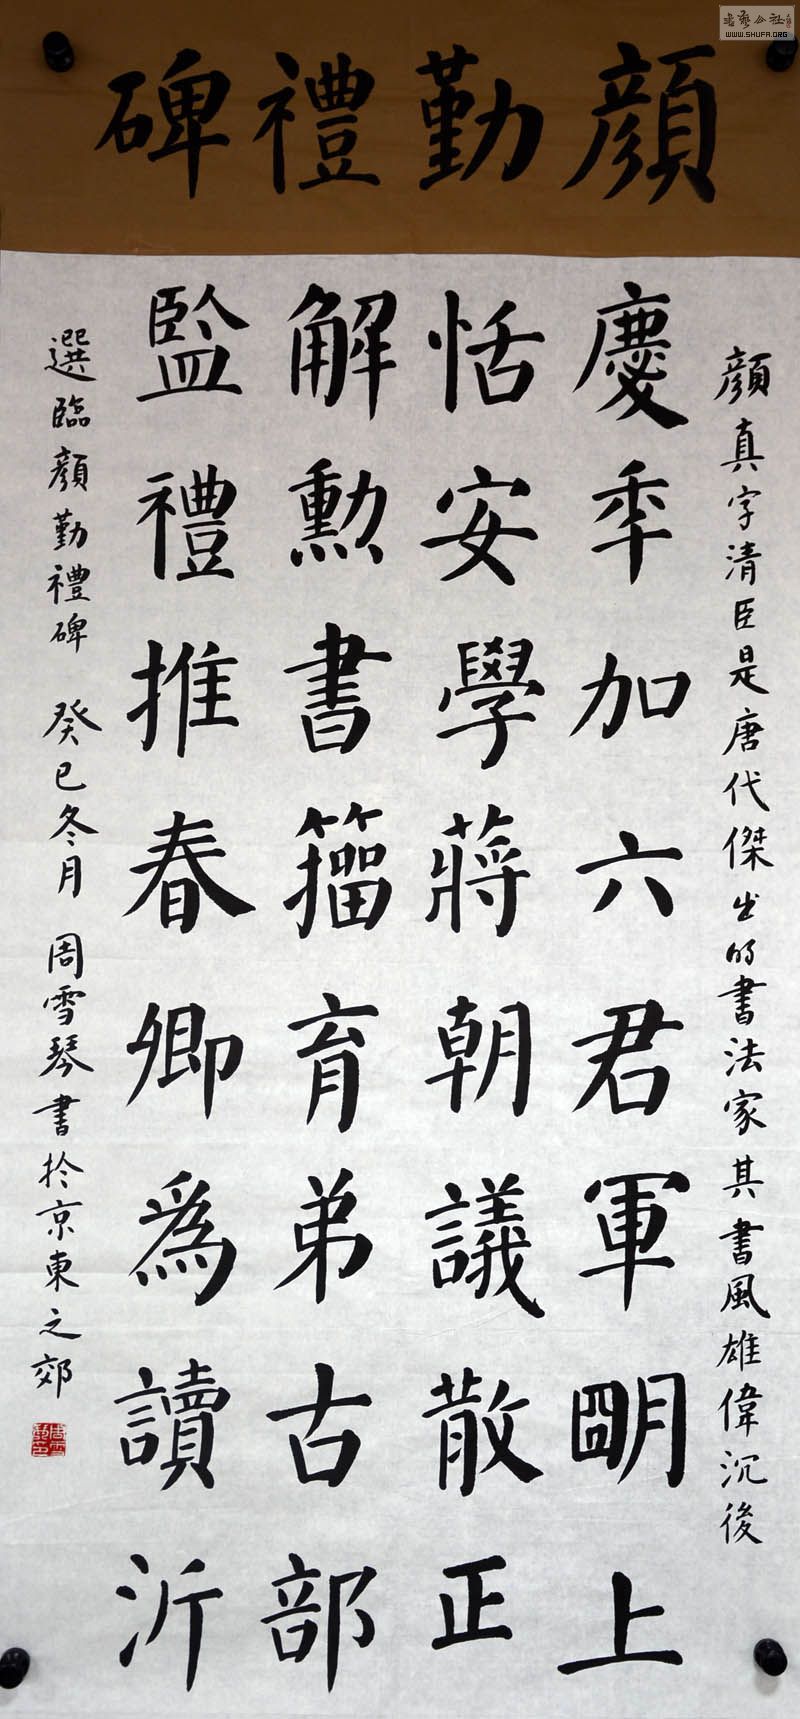 顔勤禮碑
顔真字清臣是唐代傑出的書法家其書風雄偉沉後
慶秊加六君軍朙上
恬安學蔣朝議散正
解勲書籀育弟古部
監禮推春卿爲讀沂
選臨顔勤禮碑 癸巳冬月 周雪琴書於京東之郊
書藝公社
WWW.SHUFA.ORG